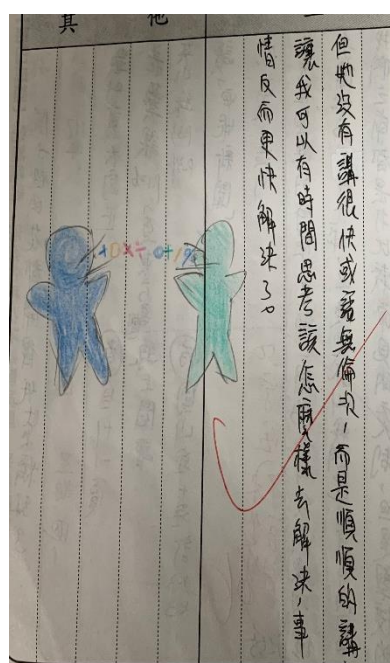 其他
但她沒有講很快或語無倫次，而是慢慢的講
讓我可以有時間思考該怎麼樣去解決，事
情反而更快解決了。